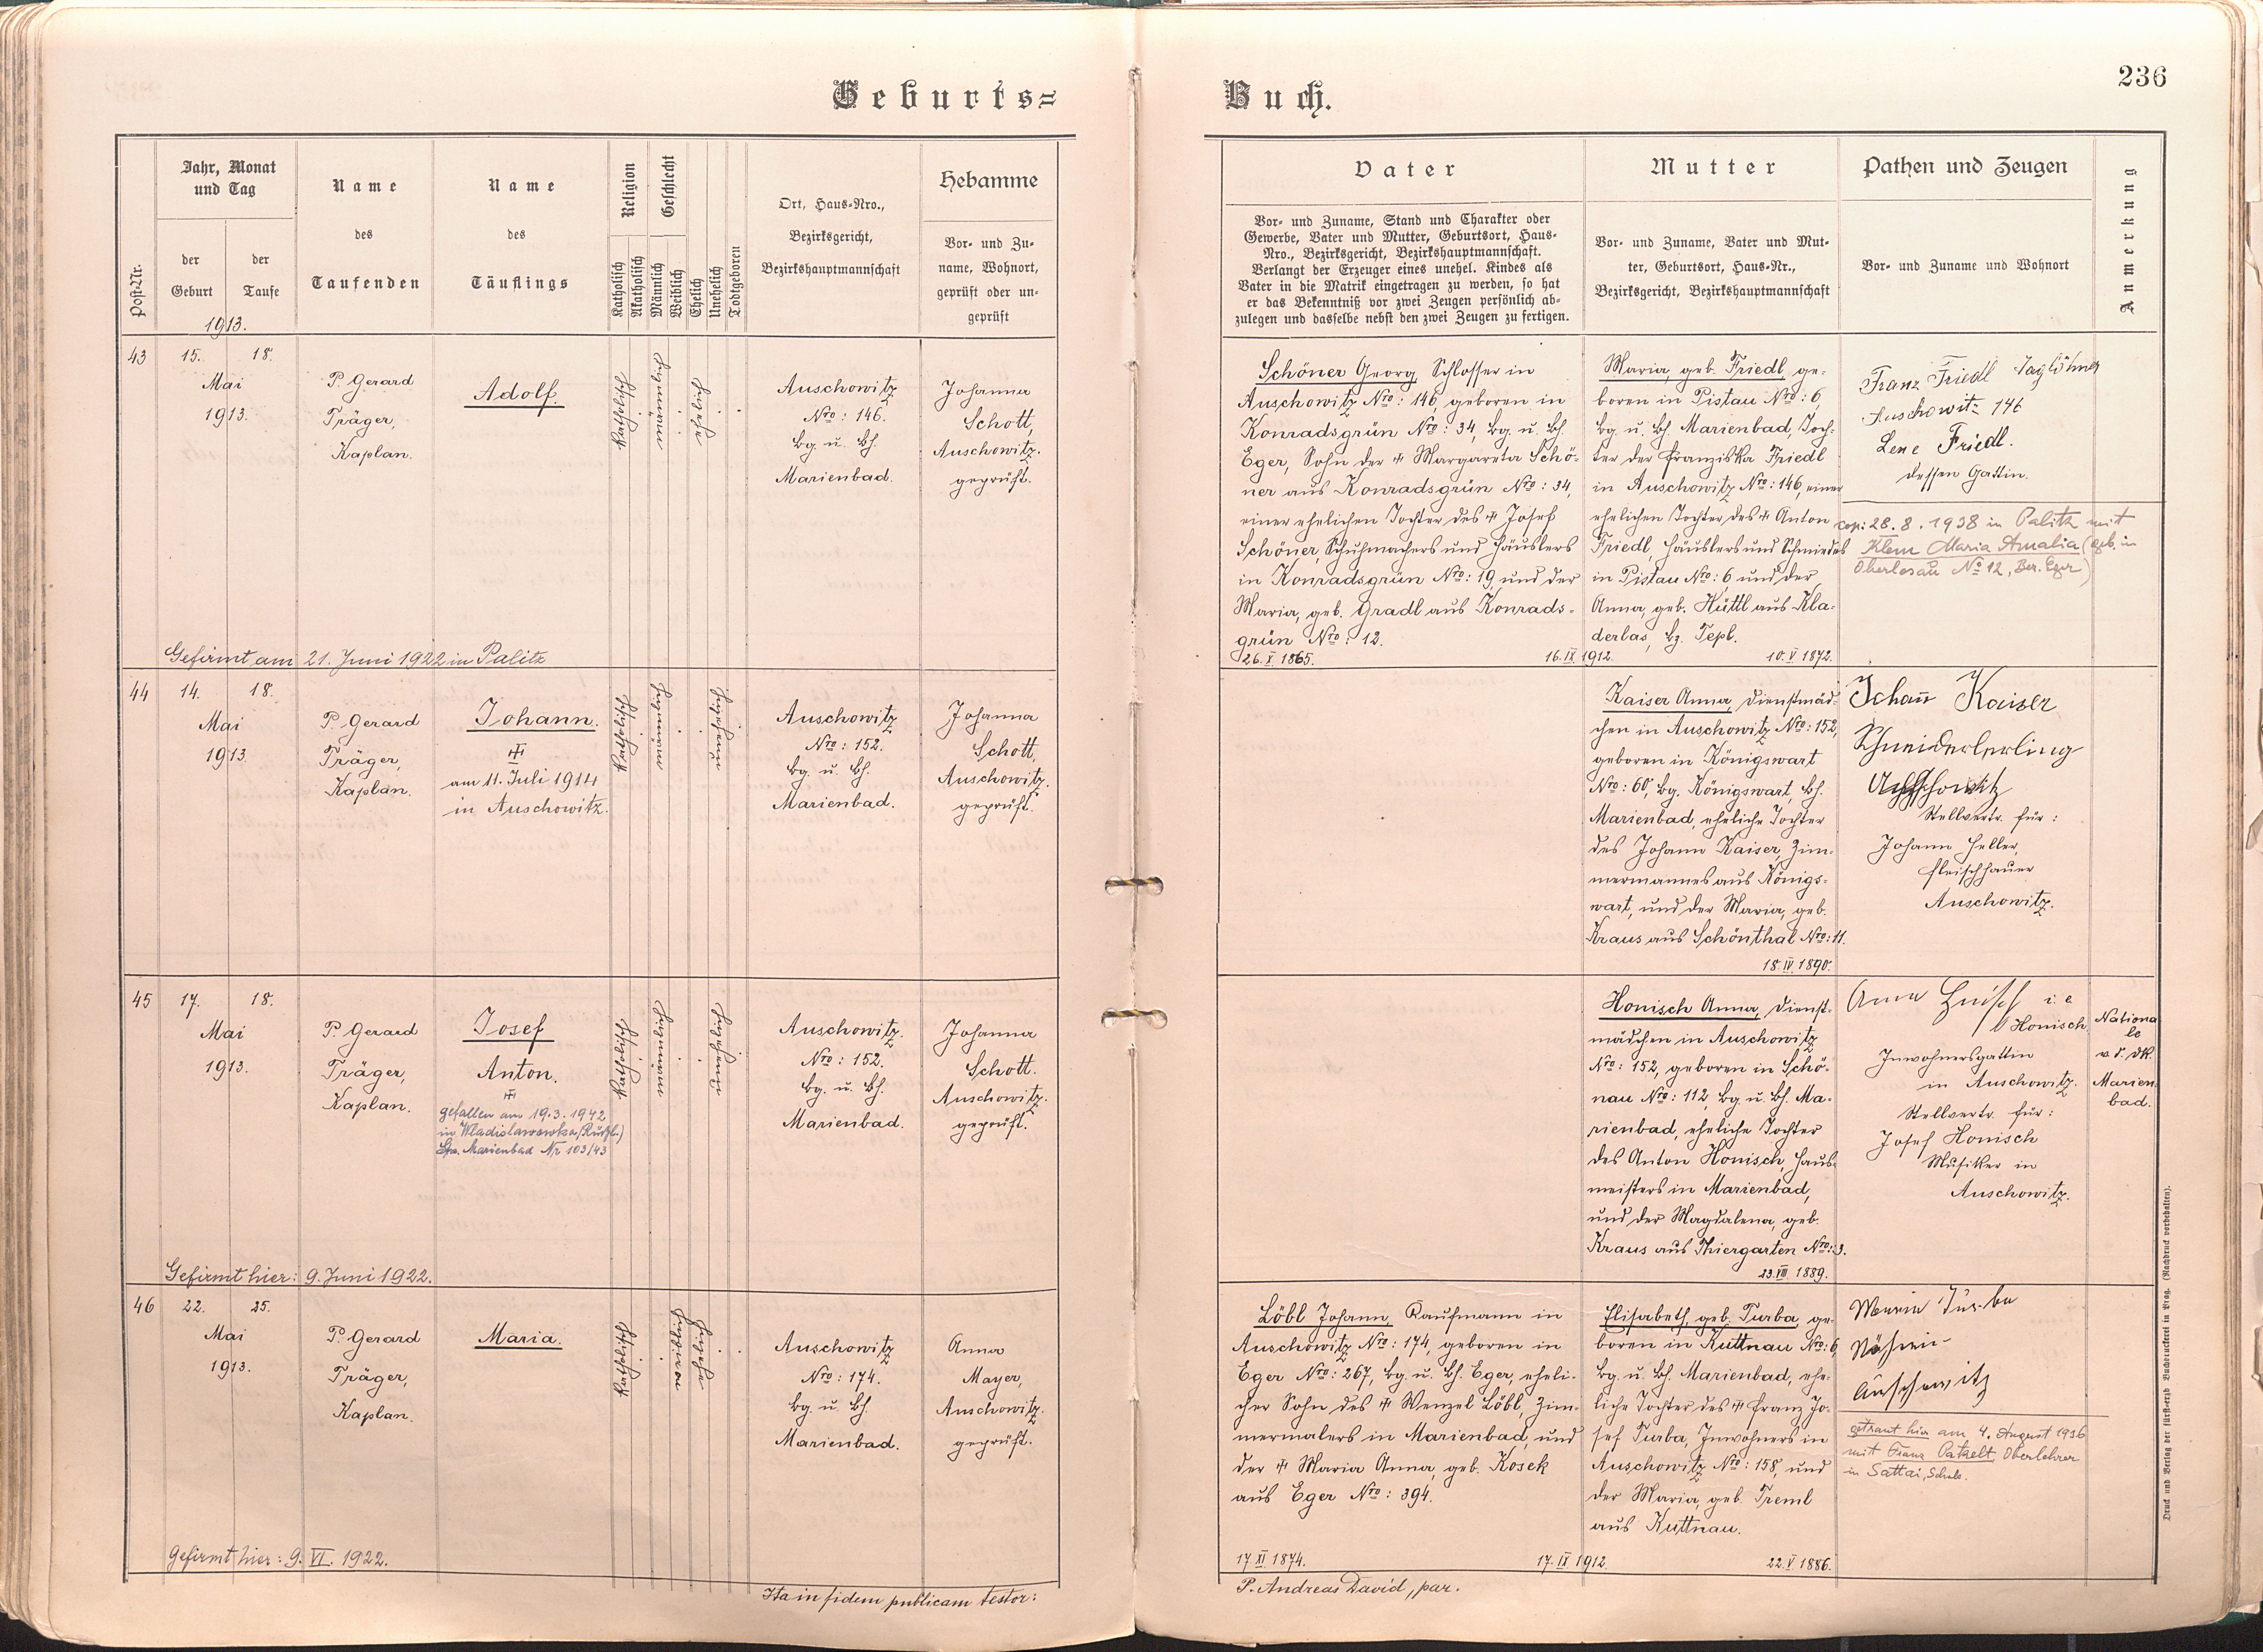 Geburts=
Buch.
236
Post-Nr.
Jahr, Monat
und Tag
der
Geburt
der
Taufe
1913.
Name
des
Taufenden
Name
des
Täuflings
Religion
Katholisch
Akatholisch
Geschlecht
Männlich
Weiblich
Ehelich
Unehelich
Todtgeboren
Ort, Haus-Nro.,
Bezirksgericht,
Bezirkshauptmannschaft
Hebamme
Vor- und Zu-
name, Wohnort,
geprüft oder un-
geprüft
Vater
Vor- und Zuname, Stand und Charakter oder
Gewerbe, Vater und Mutter, Geburtsort, Haus-
Nro., Bezirksgericht, Bezirkshauptmannschaft.
Verlangt der Erzeuger eines unehel. Kindes als
Vater in die Matrik eingetragen zu werden, so hat
er das Bekenntniß vor zwei Zeugen persönlich ab-
zulegen und dasselbe nebst den zwei Zeugen zu fertigen.
Mutter
Vor- und Zuname, Vater und Mut-
ter, Geburtsort, Haus-Nr.,
Bezirksgericht, Bezirkshauptmannschaft
Pathen und Zeugen
Vor- und Zuname und Wohnort
Anmerkung
43
15.
18.
Mai
1913.
P. Gerard
Träger,
Kaplan.
Adolf.
Katholisch
Auschowitz
Nro: 146.
Bg. u. Bh.
Marienbad.
Johanna
Schott,
Auschowitz.
geprüft.
Schöner Georg, Schlosser in
Auschowitz Nro: 146, geboren in
Konradsgrün Nro: 34, Bg. u. Bh.
Eger, Sohn der † Margareta Schö-
ner aus Konradsgrün Nro: 34,
einer ehelichen Tochter des † Josef
Schöner, Schuhmachers und Häuslers
in Konradsgrün Nro: 19, und der
Maria, geb. Gradl aus Konrads-
grün Nro: 12.
26. X. 1865.
16. IX. 1912.
Maria, geb. Friedl, ge-
boren in Pistau Nro: 6,
Bg. u. Bh. Marienbad, Toch-
ter der Franziska Friedl
in Auschowitz Nro: 146, einer
ehelichen Tochter des † Anton
Friedl, Häuslers und Schmiedes
in Pistau Nro: 6 und der
Anna, geb. Hüttl aus Kla-
derlas, Bz. Tepl.
10. V. 1872.
Franz Friedl Taglöhner
Auschowitz 146
Lene Friedl.
dessen Gattin.
cop: 28. 8. 1938 in Palitz mit
Klem Maria Amalia (geb. in
Oberlosau No 12, Bez. Eger)
Gefirmt am 21. Juni 1922 in Palitz
44
14.
18.
Mai
1913.
P. Gerard
Träger,
Kaplan.
Johann.
†
am 11. Juli 1914
in Auschowitz.
Katholisch
Auschowitz
Nro: 152.
Bg. u. Bh.
Marienbad.
Johanna
Schott,
Auschowitz.
geprüft.
Kaiser Anna, Dienstmäd-
chen in Auschowitz Nro: 152,
geboren in Königswart
Nro: 60, Bg. Königswart, Bh.
Marienbad, eheliche Tochter
des Johann Kaiser, Zim-
mermannes aus Königs-
wart, und der Maria, geb.
Kraus aus Schönthal Nro: 11.
18. IV. 1890.
Johann Kaiser
Schneiderlerling
Auschowitz
Stellvertr. für:
Johann Heller,
Fleischhauer
Auschowitz.
45
17.
18.
Mai
1913.
P. Gerard
Träger,
Kaplan.
Josef
Anton.
†
gefallen am 19. 3. 1942
in Wladislawowka, (Rußl.)
Sta. Marienbad Nr 103/43
Katholisch
Auschowitz.
Nro: 152.
Bg. u. Bh.
Marienbad.
Johanna
Schott.
Auschowitz.
geprüft.
Honisch Anna, Dienst-
mädchen in Auschowitz
Nro: 152, geboren in Schö-
nau Nro: 112, Bg. u. Bh. Ma-
rienbad, eheliche Tochter
des Anton Honisch, Haus-
meisters in Marienbad,
und der Magdalena, geb.
Kraus aus Thiergarten Nro: 3.
23. VIII. 1889.
Anna i. e.
Honisch
Inwohnersgattin
in Auschowitz.
Stellvertr. für:
Josef Honisch
Musiker in
Auschowitz.
Nationa
le
Marien
bad.
Gefirmt hier: 9. Juni 1922.
46
22.
25.
Mai
1913.
P. Gerard
Träger,
Kaplan.
Maria.
Katholisch
Auschowitz
Nro: 174.
Bg. u. Bh.
Marienbad.
Anna
Mayer,
Auschowitz.
geprüft.
Löbl Johann, Kaufmann in
Auschowitz Nro: 174, geboren in
Eger Nro: 267, Bg. u. Bh. Eger, eheli-
cher Sohn des † Wenzel Löbl, Zim-
mermalers in Marienbad, und
der † Maria Anna, geb. Kosek
aus Eger Nro: 394.
17. XI. 1874.
17. IX. 1912.
Elisabeth, geb. Turba, ge-
boren in Kuttnau Nro: 6,
Bg. u. Bh. Marienbad, ehe-
liche Tochter des † Franz Jo-
sef Turba, Inwohners in
Auschowitz Nro: 158, und
der Maria, geb. Treml
aus Kuttnau.
22. V. 1886.
Maria Turba
Näherin
Auschowitz
getraut hier am 4. August 1936
mit Franz Patzelt, Oberlehrer
in Sattai,
Gefirmt hier: 9. VI. 1922.
Ita in fidem publicam testor:
P. Andreas David, par.
Druck und Verlag der fürst-erzb. Buchdruckerei in Prag. (Nachdruck vorbehalten).